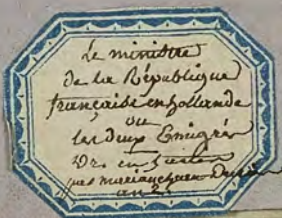 Le ministre
de la République
française en hollande
ou
les deux Emigrés
Dr. en
par
an